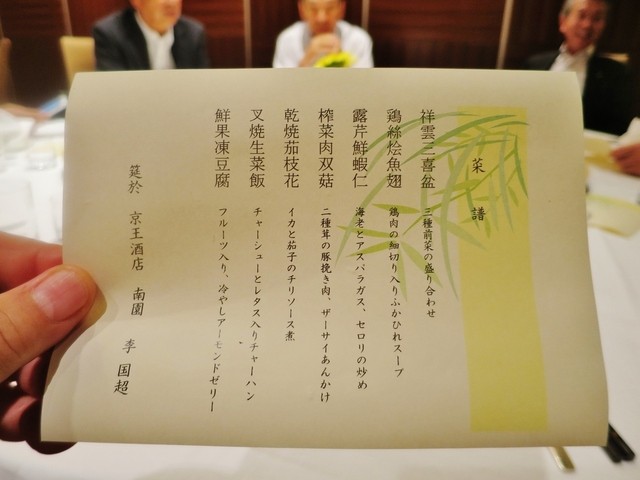 菜譜
祥雲三喜盆
三種前菜の盛り合わせ
鶏絲烩魚翅
鶏肉の細切り入りふかひれスープ
露芹鮮蝦仁
海老とアスパラガス、セロリの炒め
榨菜肉双菇
二種茸の豚挽き肉、ザーサイあんかけ
乾焼茄枝花
イカと茄子のチリソース煮
叉焼生菜飯
チャーシューとレタス入りチャーハン
鮮果凍豆腐
フルーツ入り、冷やしアーモンドゼリー
筵於 京王酒店 南園 李国超